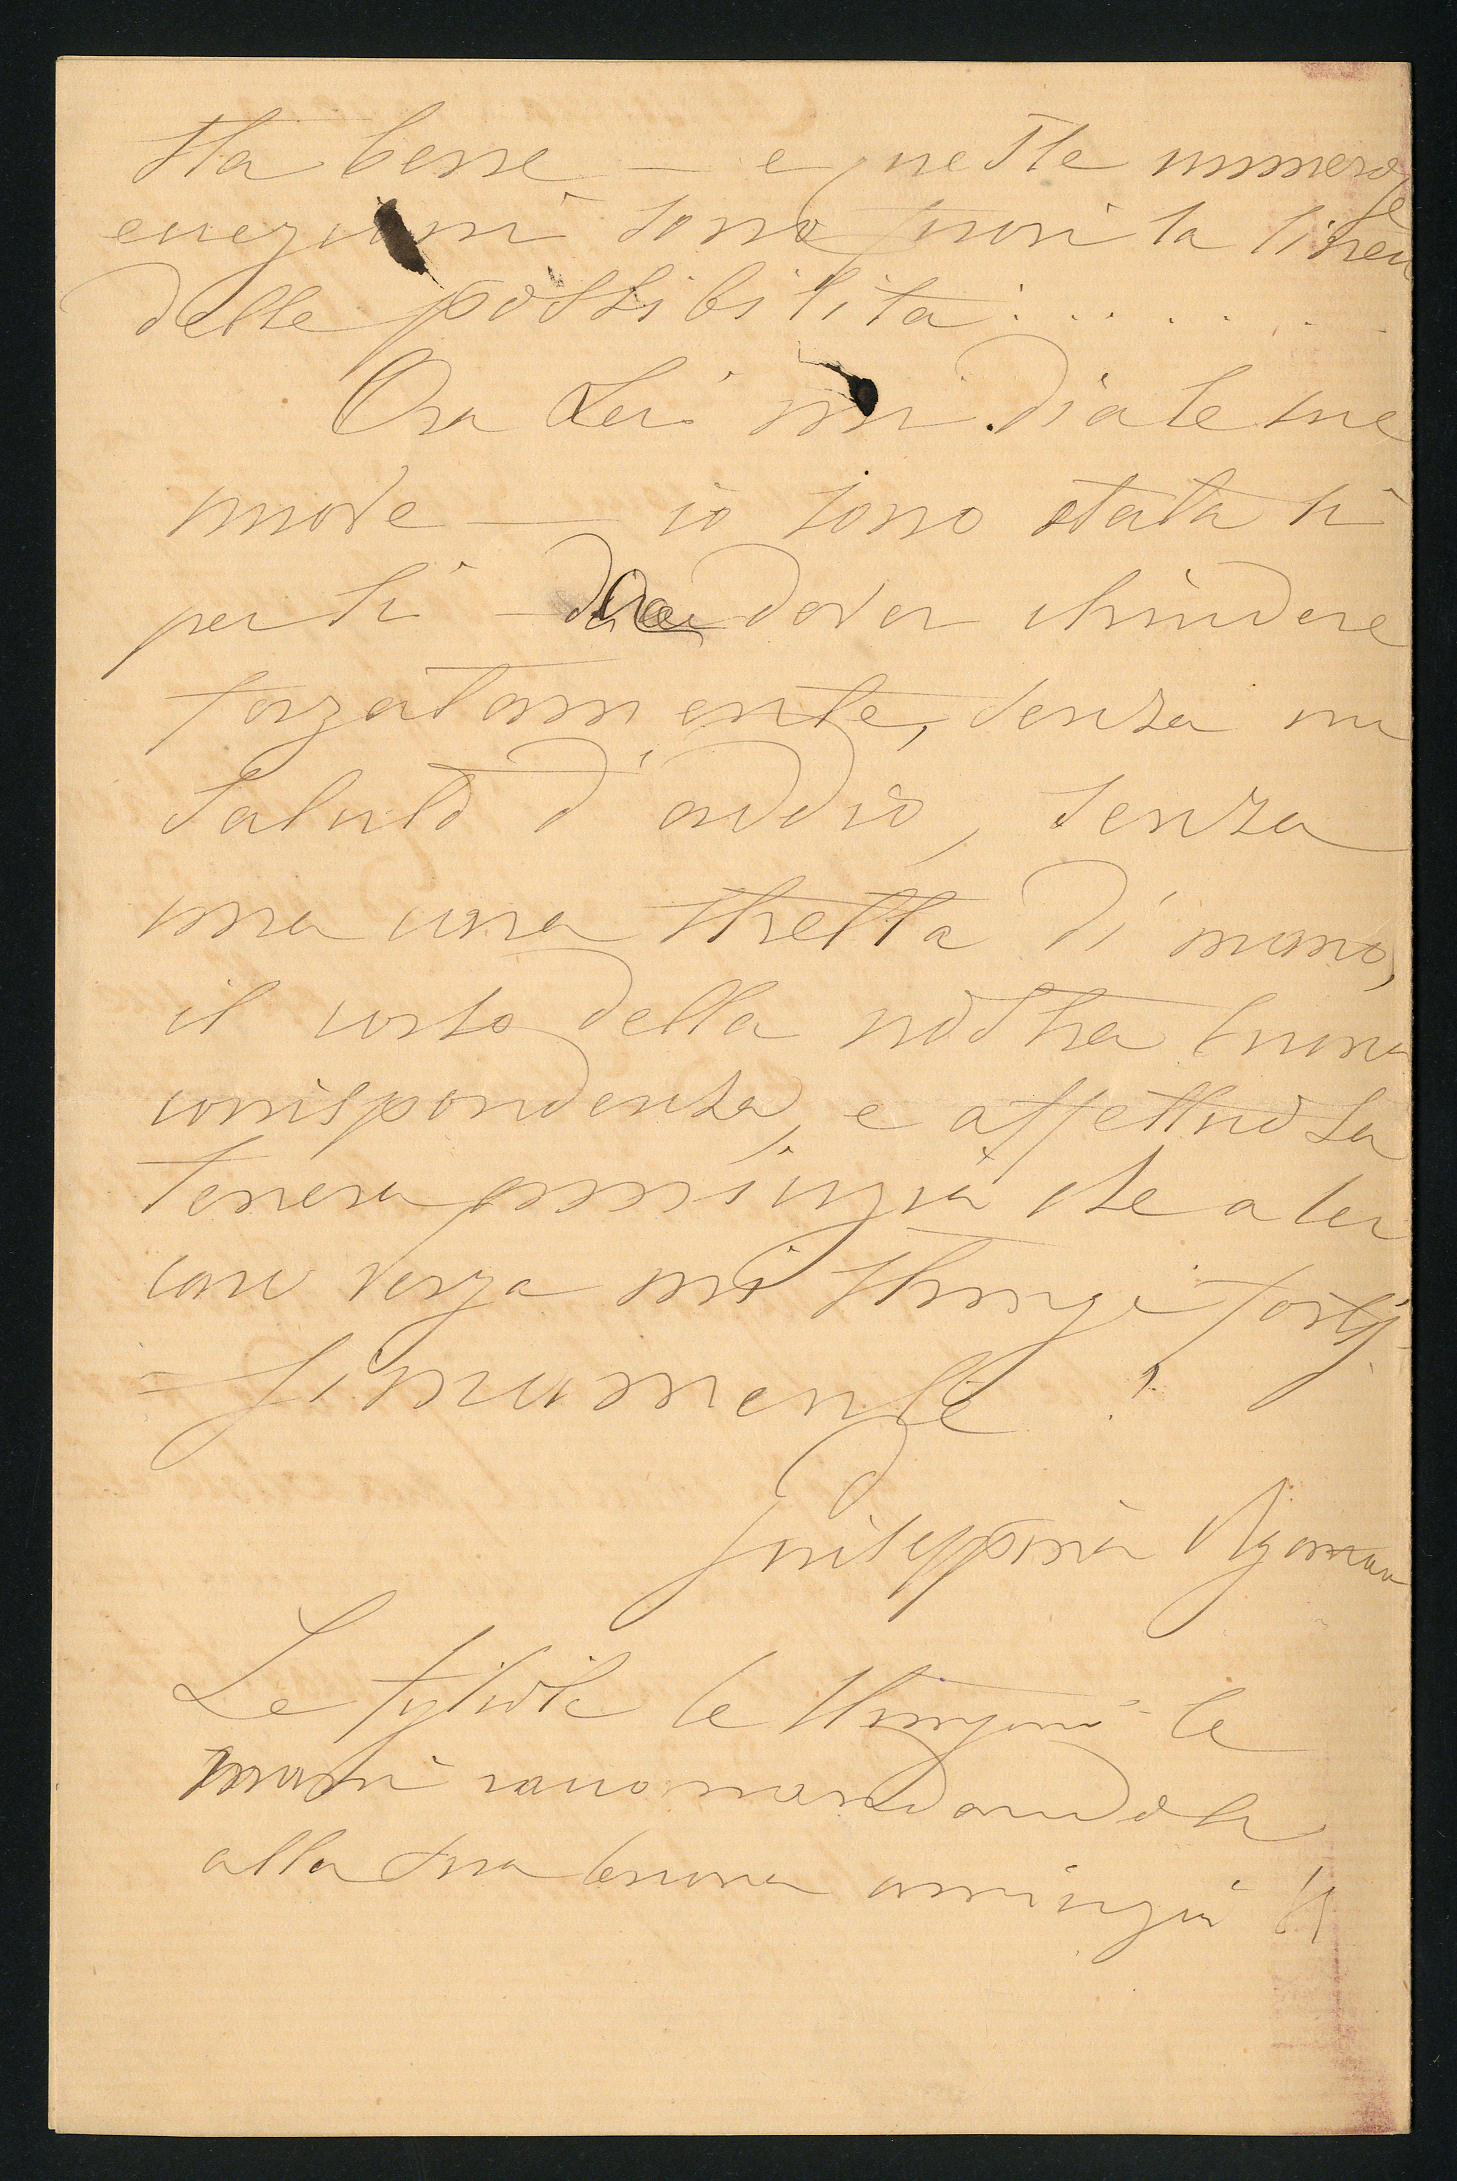 sta bene — e queste numerose
eccezioni sono fuori la linea
delle possibilità . . . . . .
Ora Lei mi dia le sue
nuove — io sono stata lì
per lì — dover chiudere
forzatamente, senza un
saluto d'addio, senza
una stretta di mano,
il corso della nostra buona
corrispondenza, e affettuosa
tenera amicizia che a lei
cara mi stringe fortis-
-simamente !
Giuseppina
Le figliole le stringono le
mani raccomandandosi
alla sua buona amicizia